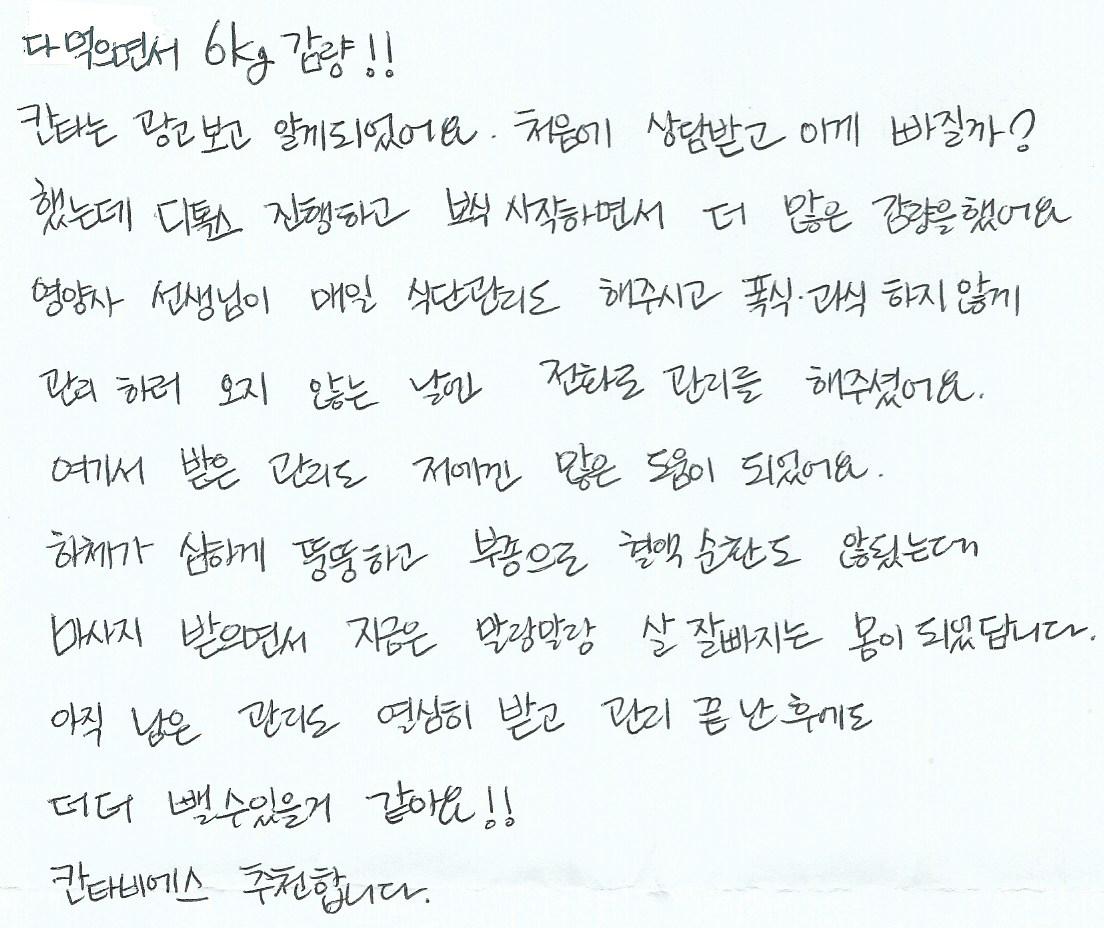 다 먹으면서 6kg 감량!!
칸타는 광고보고 알게되었어요. 처음에 상담받고 이게 빠질까?
했는데 디톡스 진행하고 보식 시작하면서 더 많은 감량을했어요
영양사 선생님이 매일 식단관리도 해주시고 폭식·과식 하지않게
관리 하러 오지 않는 날엔 전화로 관리를 해주셨어요.
여기서 받은 관리도 저에겐 많은 도움이 되었어요.
하체가 심하게 뚱뚱하고 부종으로 혈액순환도 않됬는데
마사지 받으면서 지금은 말랑말랑 살 잘빠지는 몸이되었답니다.
아직 남은 관리도 열심히 받고 관리 끝난후에도
더더 뺄수있을거 같아요!!
칸타비에스 추천합니다.